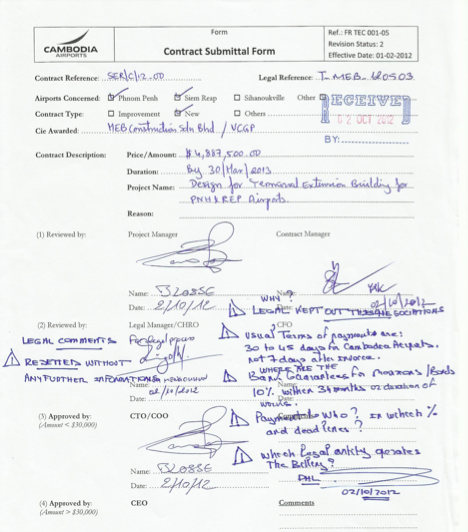 CAMBODIA
AIRPORTS
Form
Contract Submittal Form
Ref.: FR TEC 001-05
Revision Status: 2
Effective Date: 01-02-2012
Contract Reference: SER/C/12.00
Legal Reference: I-MEB-120503
Airports Concerned: Phnom Penh Siem Reap Sihanoukville Other
Contract Type: Improvement New Others
RECEIVED
02 OCT 2012
BY:
Cie Awarded: MEB Construction Sdn Bhd / VCGP
Contract Description: Price/Amount: $4,887,500.00
Duration: By 30/Mar/2013
Project Name: Design for Terminal Extension Building for
PNH & REP Airports.
Reason:
(1) Reviewed by: Project Manager Contract Manager
Name: BLOSSE Name:
Date: 2/10/12 02/10/2012
WHY?
LEGAL KEPT OUT
(2) Reviewed by: Legal Manager/CHRO CFO
Usual Terms of payments are:
30 to 45 days for Cambodia Airports.
Not 7 days after invoice.
LEGAL COMMENTS
WITHOUT
ANY FURTHER INFORMATION
Name:
Date: 02/10/2012
WHERE ARE THE
Bank Guarantees for
10% within 3 months
works.
(3) Approved by: CTO/COO
(Amount < $30,000)
Payment to Who? In which %
and deadlines?
Name: BLOSSE
Date: 2/10/12
Which legal entity
The Billing?
PHL
02/10/2012
(4) Approved by: CEO Comments
(Amount > $30,000)